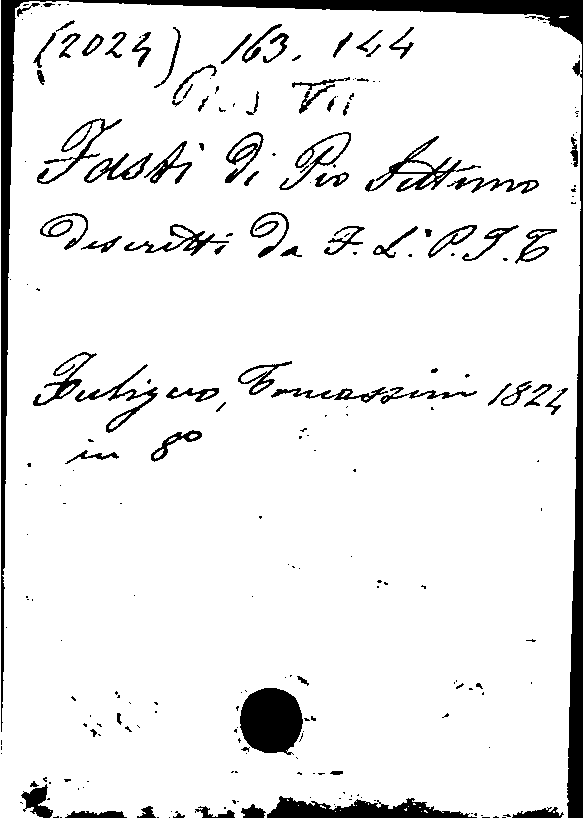 (2024) 163. 144
Pius VII
Fasti di Pio Settimo
descritti da F. L. P. I. T
Fuligno, Tomassini 1824
in 8º